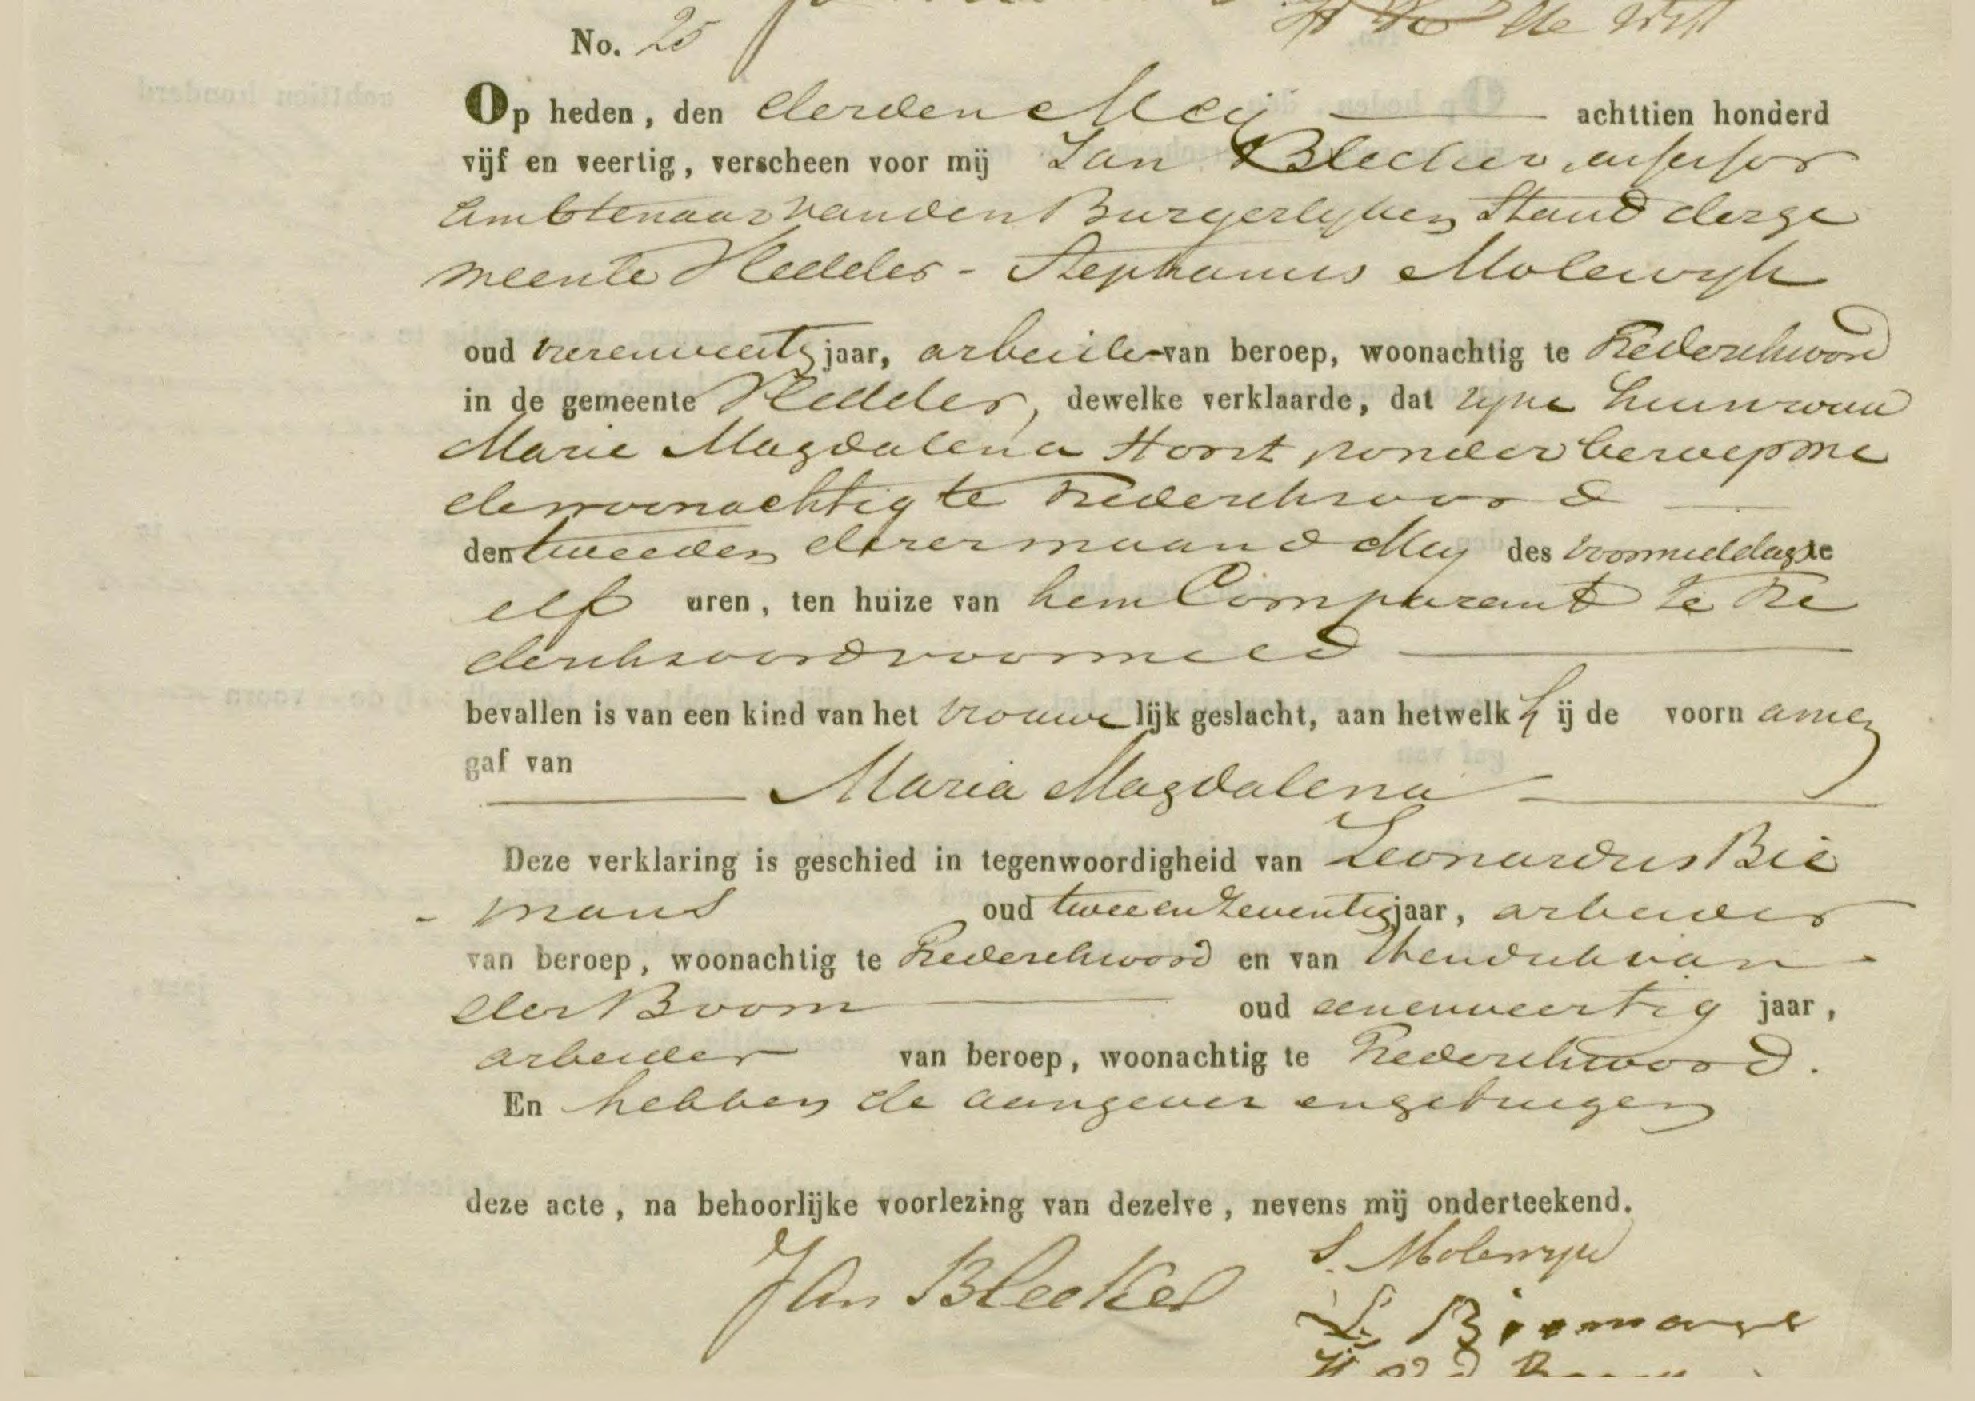 No. 25
Op heden, den derden Meij achttien honderd
vijf en veertig, verscheen voor mij Jan Blecker, assessor
Ambtenaar van den Burgerlyken Stand der ge
meente Vledder - Stephanus Molewyk
oud vierenveertig jaar, arbeider van beroep, woonachtig te Frederiksoord
in de gemeente Vledder, dewelke verklaarde, dat zyne huisvrouw
Marie Magdalena Horst zonder beroep me
de woonachtig te Frederiksoord
den tweeden dezer maand Mey des voormiddags te
elf uren, ten huize van hem Comparant te Fre
deriksoord voormeld
bevallen is van een kind van het vrouwelijk geslacht, aan hetwelk hij de voornamen
gaf van
Maria Magdalena
Deze verklaring is geschied in tegenwoordigheid van Leonardus Bie
- mans oud twee en zeventig jaar, arbeider
van beroep, woonachtig te Frederiksoord en van Hendrik van
der Boom oud eenenveertig jaar,
arbeider van beroep, woonachtig te Frederiksoord.
En hebben de aangever en getuigen
deze acte, na behoorlijke voorlezing van dezelve, nevens mij onderteekend.
Jan Blecker
S. Molewyk
L. Biemans